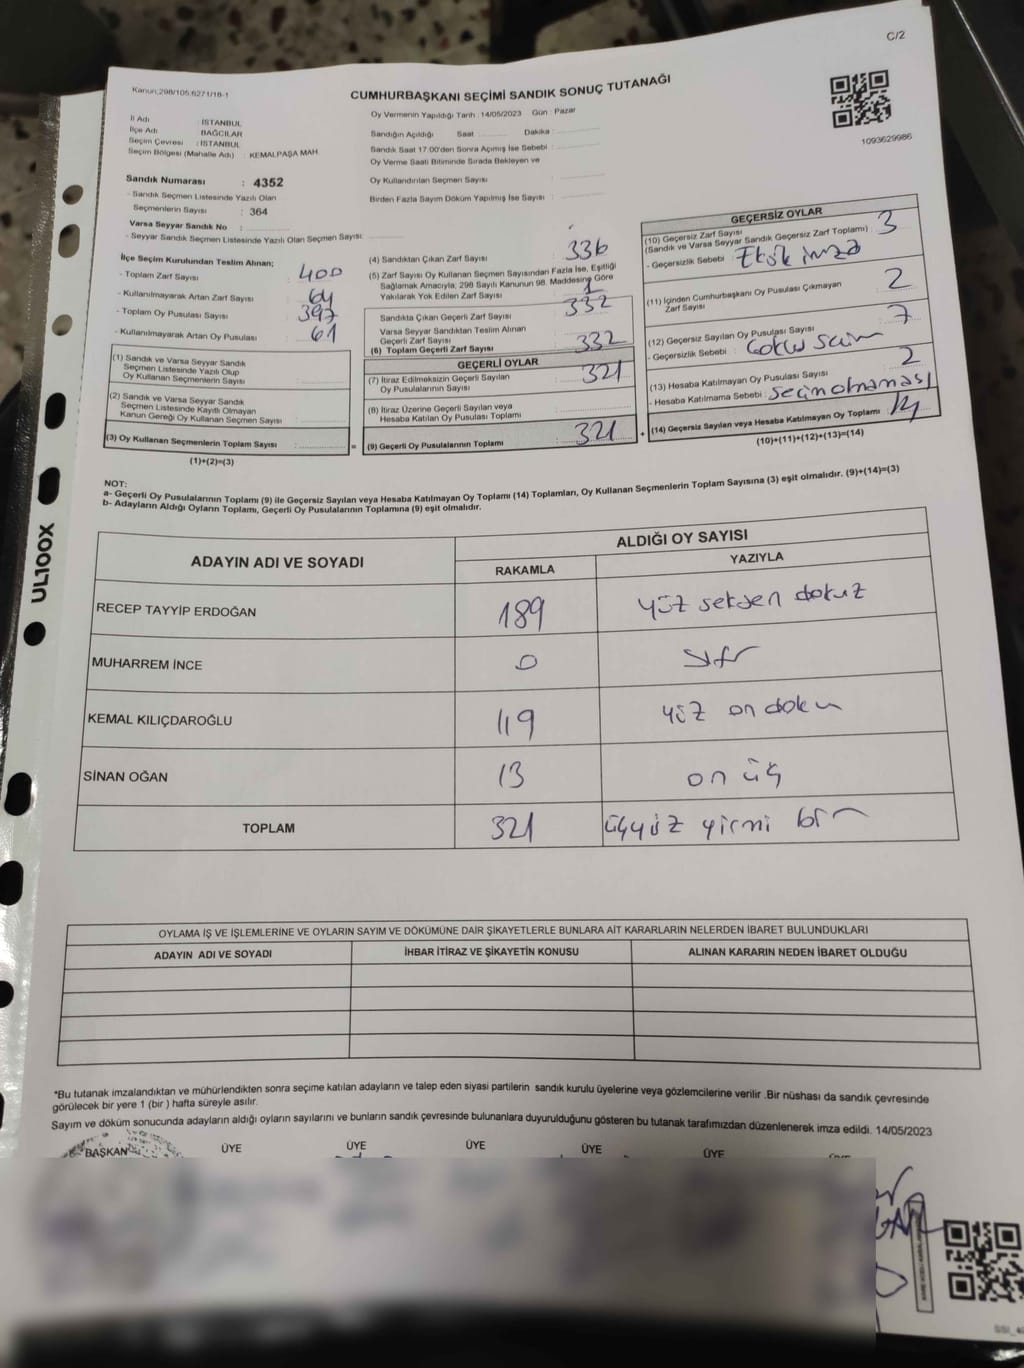 C/2
Kanun;298/105,6271/18-1
CUMHURBAŞKANI SEÇİMİ SANDIK SONUÇ TUTANAĞI
1093629986
İl Adı : İSTANBUL
İlçe Adı : BAĞCILAR
Seçim Çevresi : İSTANBUL
Seçim Bölgesi (Mahalle Adı) : KEMALPAŞA MAH.
Sandık Numarası : 4352
- Sandık Seçmen Listesinde Yazılı Olan
Seçmenlerin Sayısı : 364
Varsa Seyyar Sandık No :
- Seyyar Sandık Seçmen Listesinde Yazılı Olan Seçmen Sayısı:
Oy Vermenin Yapıldığı Tarih :14/05/2023 Gün : Pazar
Sandığın Açıldığı Saat: Dakika :
Sandık Saat 17:00'den Sonra Açımış İse Sebebi :
Oy Verme Saati Bitiminde Sırada Bekleyen ve
Oy Kullandırılan Seçmen Sayısı :
Birden Fazla Sayım Döküm Yapılmış İse Sayısı :
İlçe Seçim Kurulundan Teslim Alınan;
- Toplam Zarf Sayısı : 400
- Kullanılmayarak Artan Zarf Sayısı : 64
- Toplam Oy Pusulası Sayısı : 397
- Kullanılmayarak Artan Oy Pusulası : 61
(1) Sandık ve Varsa Seyyar Sandık
Seçmen Listesinde Yazılı Olup
Oy Kullanan Seçmenlerin Sayısı :
(2) Sandık ve Varsa Seyyar Sandık
Seçmen Listesinde Kayıtlı Olmayan
Kanun Gereği Oy Kullanan Seçmen Sayısı :
(3) Oy Kullanan Seçmenlerin Toplam Sayısı : =
(1)+(2)=(3)
(4) Sandıktan Çıkan Zarf Sayısı : 336
(5) Zarf Sayısı Oy Kullanan Seçmen Sayısından Fazla İse, Eşitliği
Sağlamak Amacıyla; 298 Sayılı Kanunun 98. Maddesine Göre
Yakılarak Yok Edilen Zarf Sayısı : 1
Sandıkta Çıkan Geçerli Zarf Sayısı : 332
Varsa Seyyar Sandıktan Teslim Alınan
Geçerli Zarf Sayısı :
(6) Toplam Geçerli Zarf Sayısı : 332
GEÇERLİ OYLAR
(7) İtiraz Edilmeksizin Geçerli Sayılan
Oy Pusulalarının Sayısı : 321
(8) İtiraz Üzerine Geçerli Sayılan veya
Hesaba Katılan Oy Pusulası Toplamı :
(9) Geçerli Oy Pusulalarının Toplamı : 321 +
GEÇERSİZ OYLAR
(10) Geçersiz Zarf Sayısı
(Sandık ve Varsa Seyyar Sandık Geçersiz Zarf Toplamı) : 3
- Geçersizlik Sebebi : Eksik imza
(11) İçinden Cumhurbaşkanı Oy Pusulası Çıkmayan
Zarf Sayısı : 2
(12) Geçersiz Sayılan Oy Pusulası Sayısı : 7
- Geçersizlik Sebebi :
(13) Hesaba Katılmayan Oy Pusulası Sayısı : 2
- Hesaba Katılmama Sebebi : Seçim olmaması
(14) Geçersiz Sayılan veya Hesaba Katılmayan Oy Toplamı : 14
(10)+(11)+(12)+(13)=(14)
NOT:
a- Geçerli Oy Pusulalarının Toplamı (9) ile Geçersiz Sayılan veya Hesaba Katılmayan Oy Toplamı (14) Toplamları, Oy Kullanan Seçmenlerin Toplam Sayısına (3) eşit olmalıdır. (9)+(14)=(3)
b- Adayların Aldığı Oyların Toplamı, Geçerli Oy Pusulalarının Toplamına (9) eşit olmalıdır.
UL100X
ADAYIN ADI VE SOYADI
ALDIĞI OY SAYISI
RAKAMLA YAZIYLA
RECEP TAYYİP ERDOĞAN 189 yüz seksen dokuz
MUHARREM İNCE 0 sıfır
KEMAL KILIÇDAROĞLU 119 yüz on dokuz
SİNAN OĞAN 13 on üç
TOPLAM 321 üçyüz yirmi bir
OYLAMA İŞ VE İŞLEMLERİNE VE OYLARIN SAYIM VE DÖKÜMÜNE DAİR ŞİKAYETLERLE BUNLARA AİT KARARLARIN NELERDEN İBARET BULUNDUKLARI
ADAYIN ADI VE SOYADI İHBAR İTİRAZ VE ŞİKAYETİN KONUSU ALINAN KARARIN NEDEN İBARET OLDUĞU
*Bu tutanak imzalandıktan ve mühürlendikten sonra seçime katılan adayların ve talep eden siyasi partilerin sandık kurulu üyelerine veya gözlemcilerine verilir .Bir nüshası da sandık çevresinde
görülecek bir yere 1 (bir ) hafta süreyle asılır.
Sayım ve döküm sonucunda adayların aldığı oyların sayılarını ve bunların sandık çevresinde bulunanlara duyurulduğunu gösteren bu tutanak tarafımızdan düzenlenerek imza edildi. 14/05/2023
BAŞKAN ÜYE ÜYE ÜYE ÜYE ÜYE